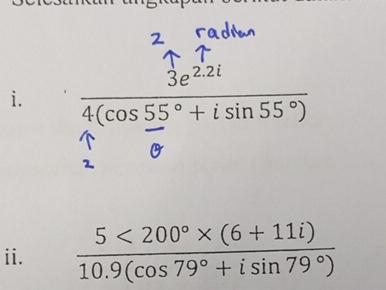 Selesaikan ungkapan berikut
2 radian
↑ ↑
3e^{2.2i}
i.
4(cos 55° + i sin 55°)
↑ θ
2
5 < 200° × (6 + 11i)
ii.
10.9(cos 79° + i sin 79°)